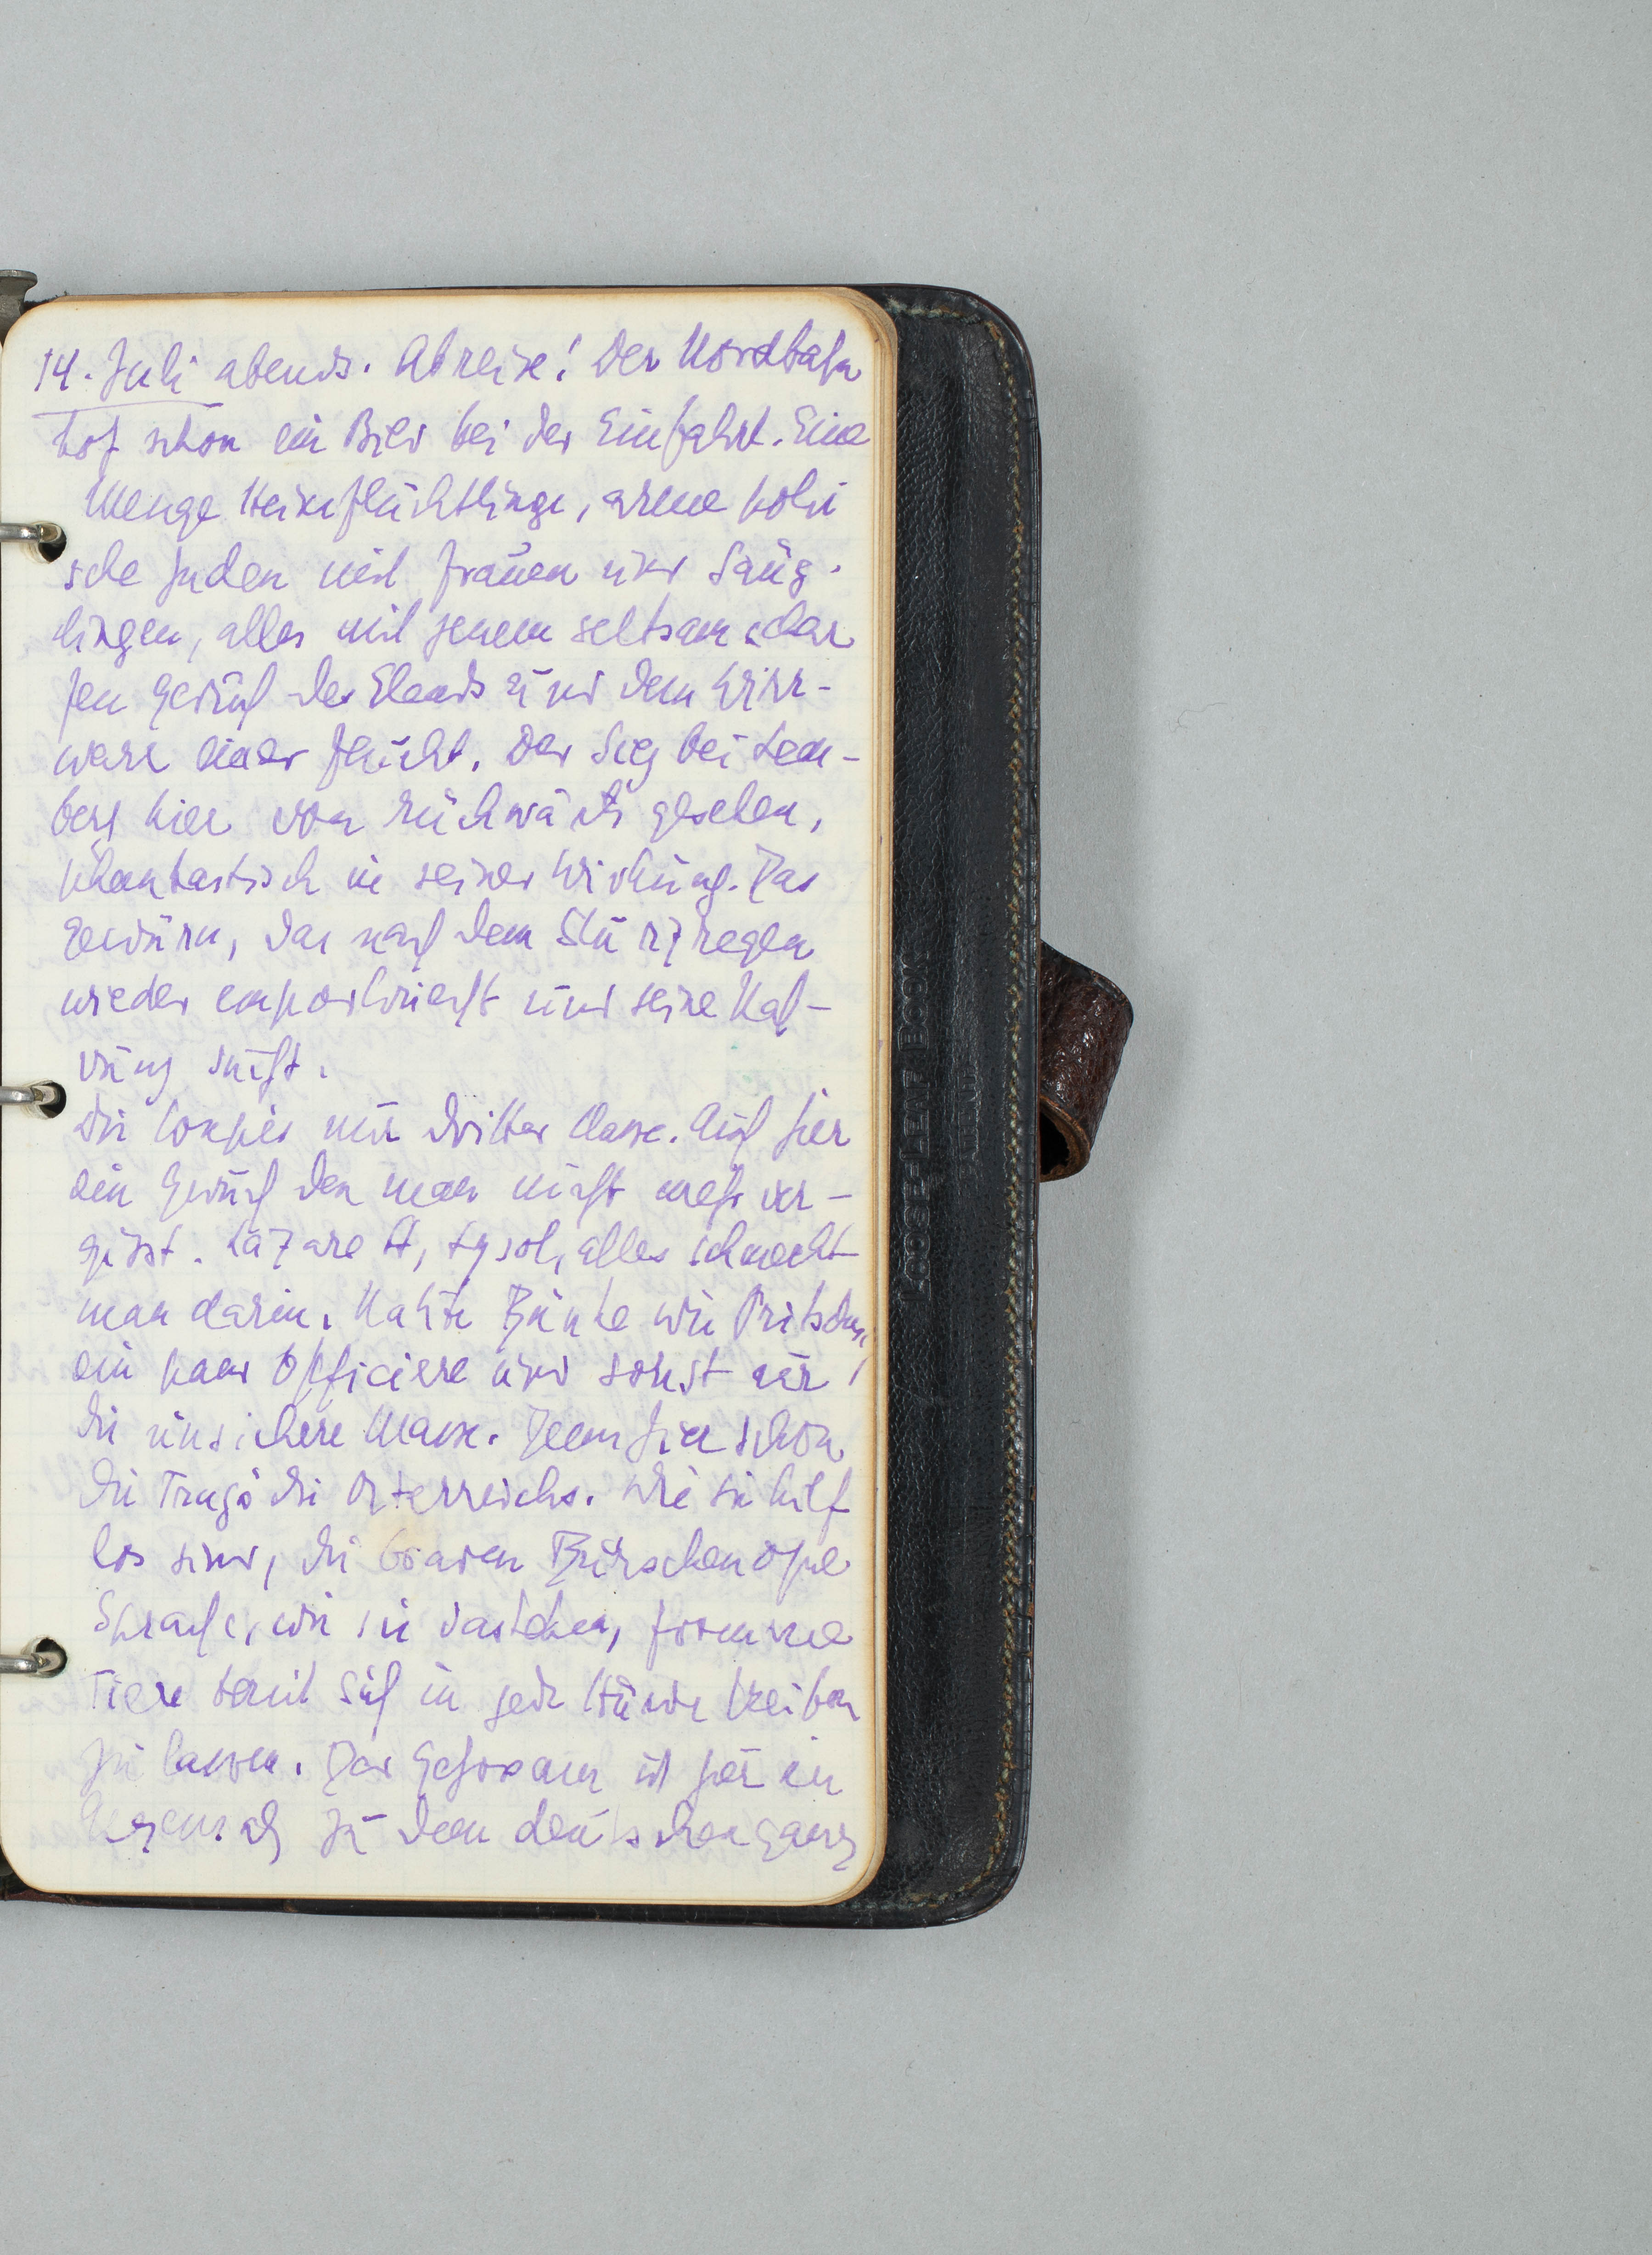 14. Juli abends. Abreise! Der Nordbahn
hof schon ein Bild bei der Einfahrt. Eine
Menge Heimflüchtlinge, arme polni
sche Juden mit Frauen und Säug-
lingen, alles mit jenem seltsam schar
fen Geruch des Elends und dem Wirr-
warr einer Flucht. Der Sieg bei Lem-
berg hier von rückwärts gesehen,
phantastisch in seiner Wirkung. Das
Gewürm, das nach dem Sturzregen
wieder emporkriecht und seine Nah-
rung sucht.
Die Coupés nur dritter Classe. Auch hier
ein Geruch den man nicht mehr ver-
gisst. Lazarett, Lysol, alles schmeckt
man darin. Nackte Bänke wie Pritschen,
ein paar Officiere und sonst nur
die unsichere Masse. Hier schon
die Tragödie Österreichs. Wie sie hilf
los sind, die braven Burschen ohne
Sprache, wie sie dastehen, fromme
Tiere bereit sich in jede Hürde treiben
zu lassen. Der Gehorsam ist hier im
Gegensatz zu dem deutschen ganz
LOOSE-LEAF BOOK